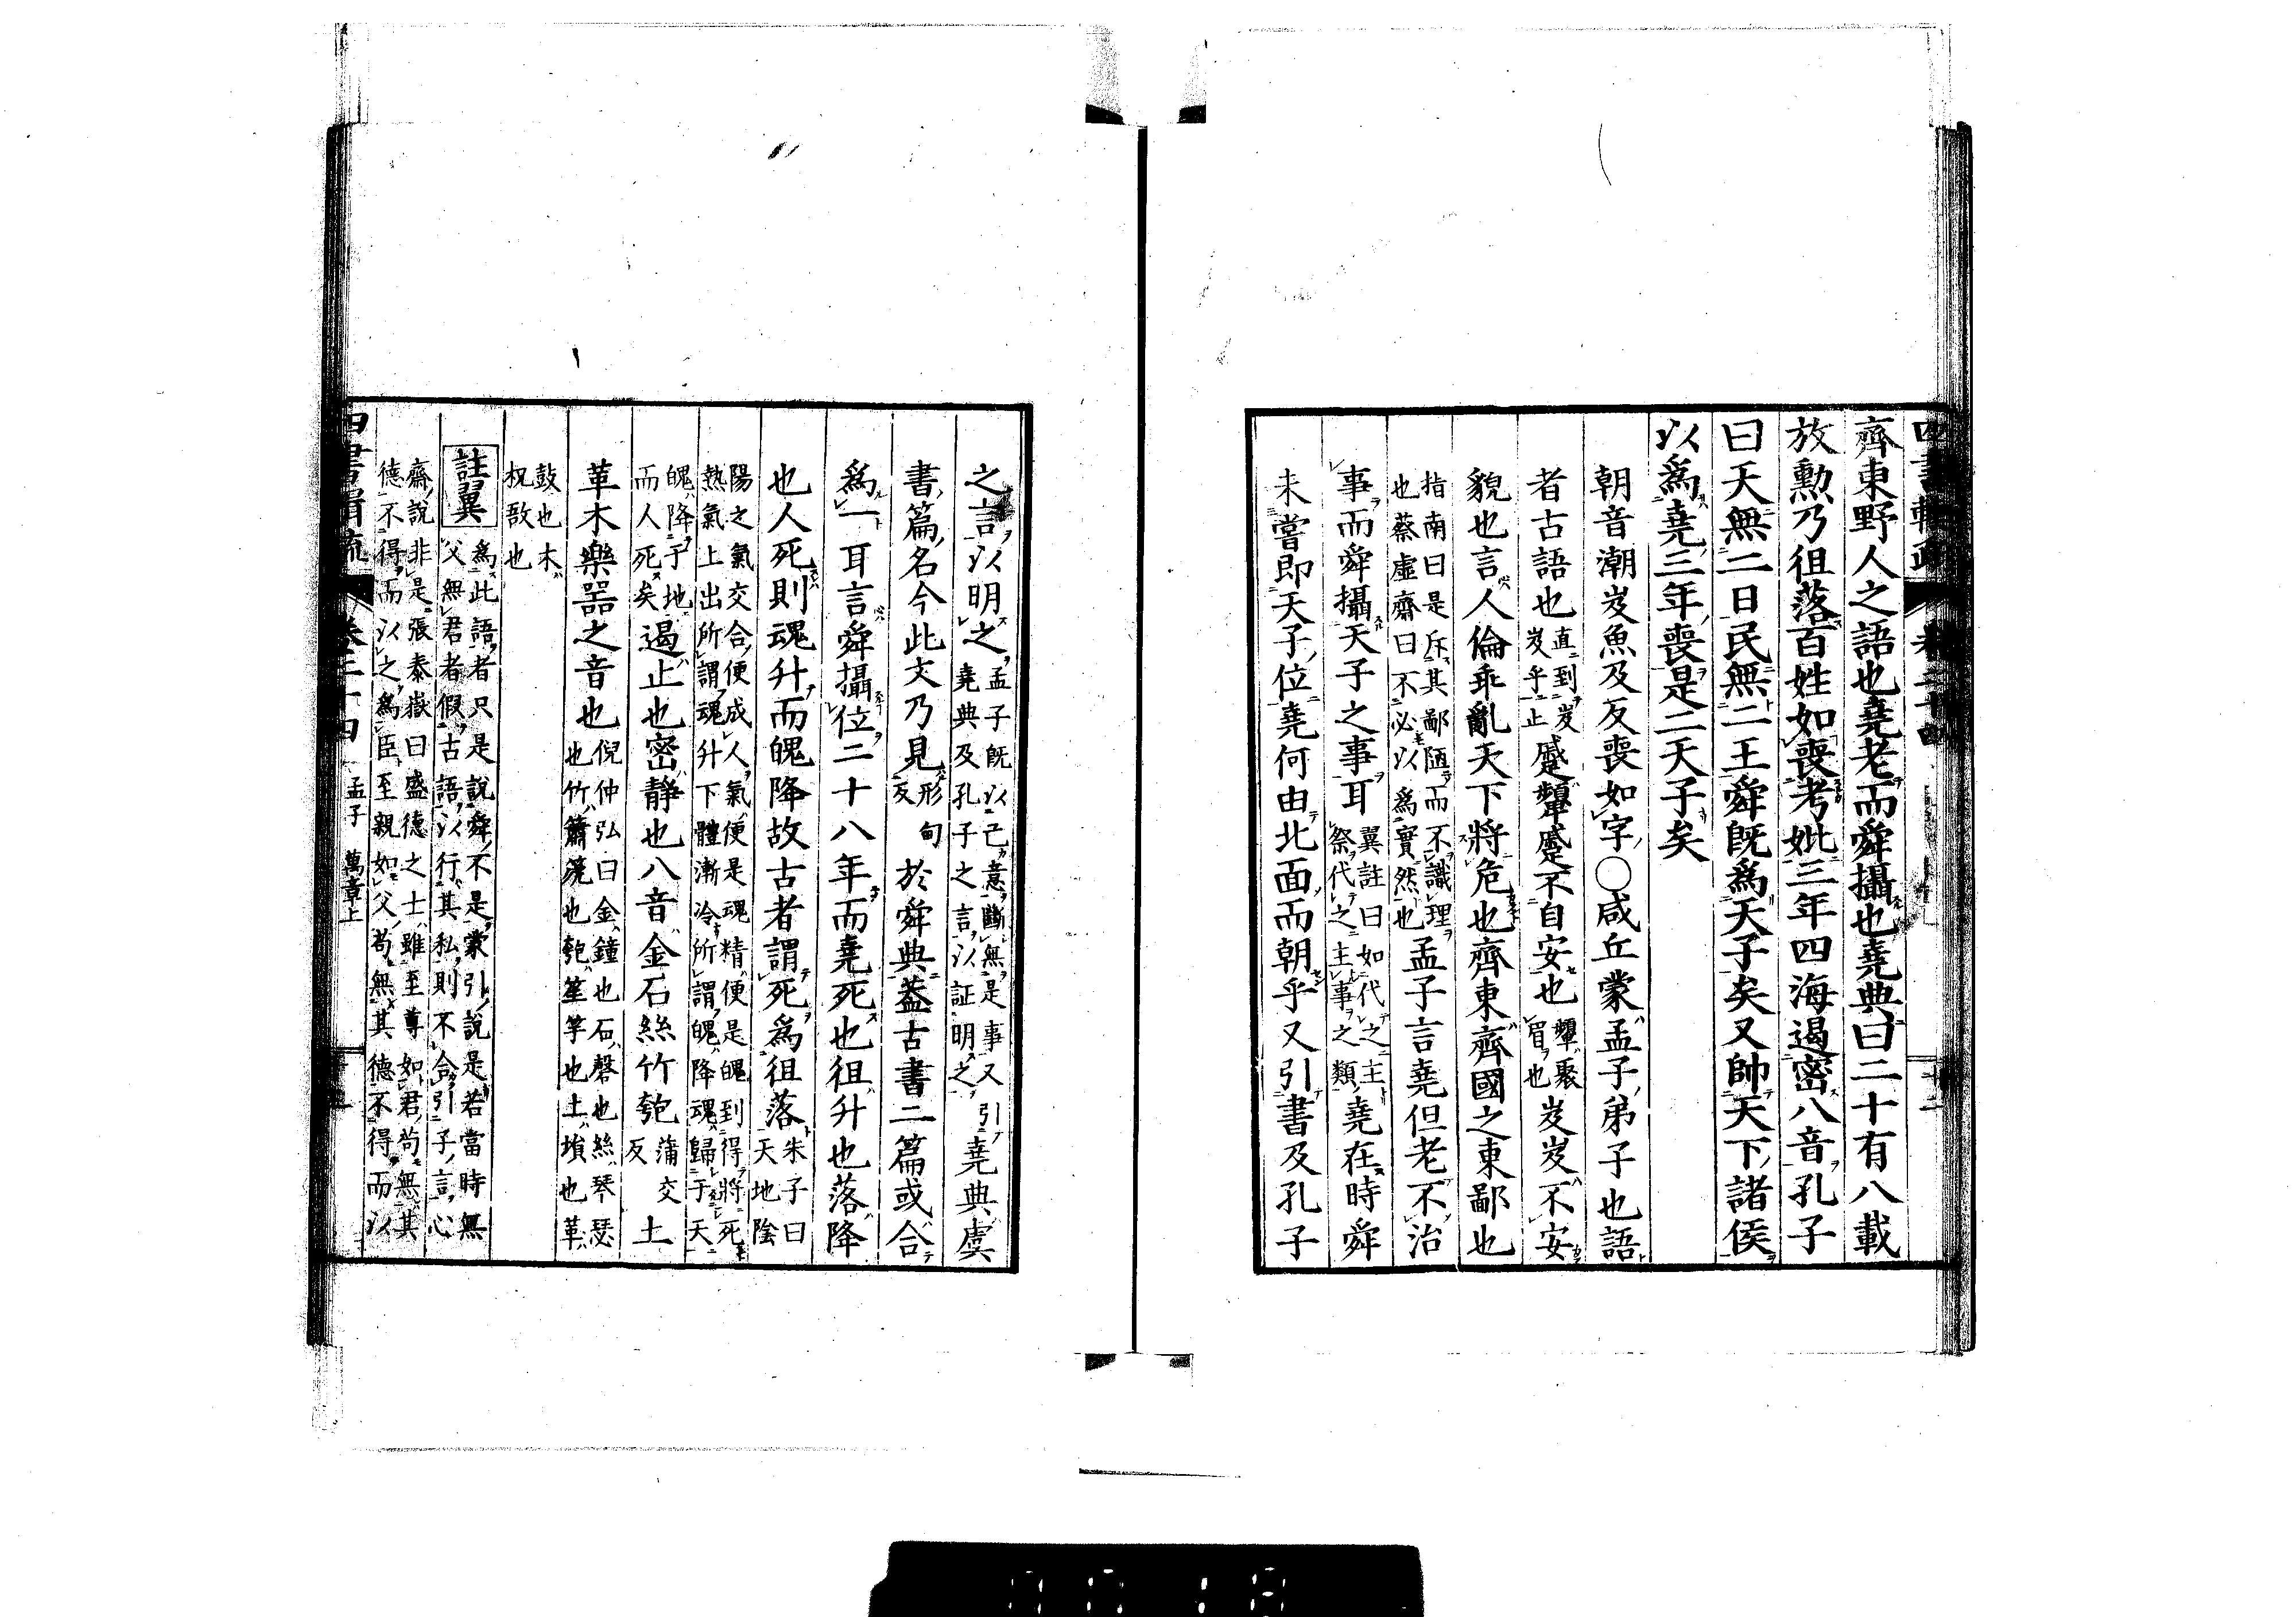 齊東野人之語也堯老而舜攝也堯典曰二十有八載
放勲乃徂落百姓如喪考妣三年四海遏密八音孔子
曰天無二日民無二王舜既爲天子矣又帥天下諸侯
以爲堯三年喪是二天子矣
朝音潮岌魚及反喪如字○咸丘蒙孟子弟子也語
者古語也直到岌岌乎止蹙顰蹙不自安也顰聚眉也岌岌不安
貌也言人倫乖亂天下將危也齊東齊國之東鄙也
指南曰是斥其鄙陋而不識理也蔡虛齋曰不必以爲實然也孟子言堯但老不治
事而舜攝天子之事耳翼註曰如代之主祭代之主事之類堯在時舜
未嘗即天子位堯何由北面而朝乎又引書及孔子
之言以明之孟子既以己意斷無是事又引堯典及孔子之言以証明之堯典虞
書篇名今此文乃見形甸反於舜典蓋古書二篇或合
爲一耳言舜攝位二十八年而堯死也徂升也落降
也人死則魂升而魄降故古者謂死爲徂落朱子曰天地陰
陽之氣交合便成人氣便是魂精便是魄到得將死熱氣上出所謂魂升下體漸冷所謂魄降魂歸于天
魄降于地而人死矣遏止也密靜也八音金石絲竹匏蒲交反土
革木樂器之音也倪仲弘曰金鐘也石磬也絲琴瑟也竹簫箎也匏笙竽也土塤也革
鼓也木柷敔也
註翼 爲此語者只是說舜不是蒙引說是若當時無父無君者假古語以行其私則不合引子言心
齋說非是張泰嶽曰盛德之士雖至尊如君苟無其德不得而以之爲臣至親如父苟無其德不得而以
孟子 萬章上